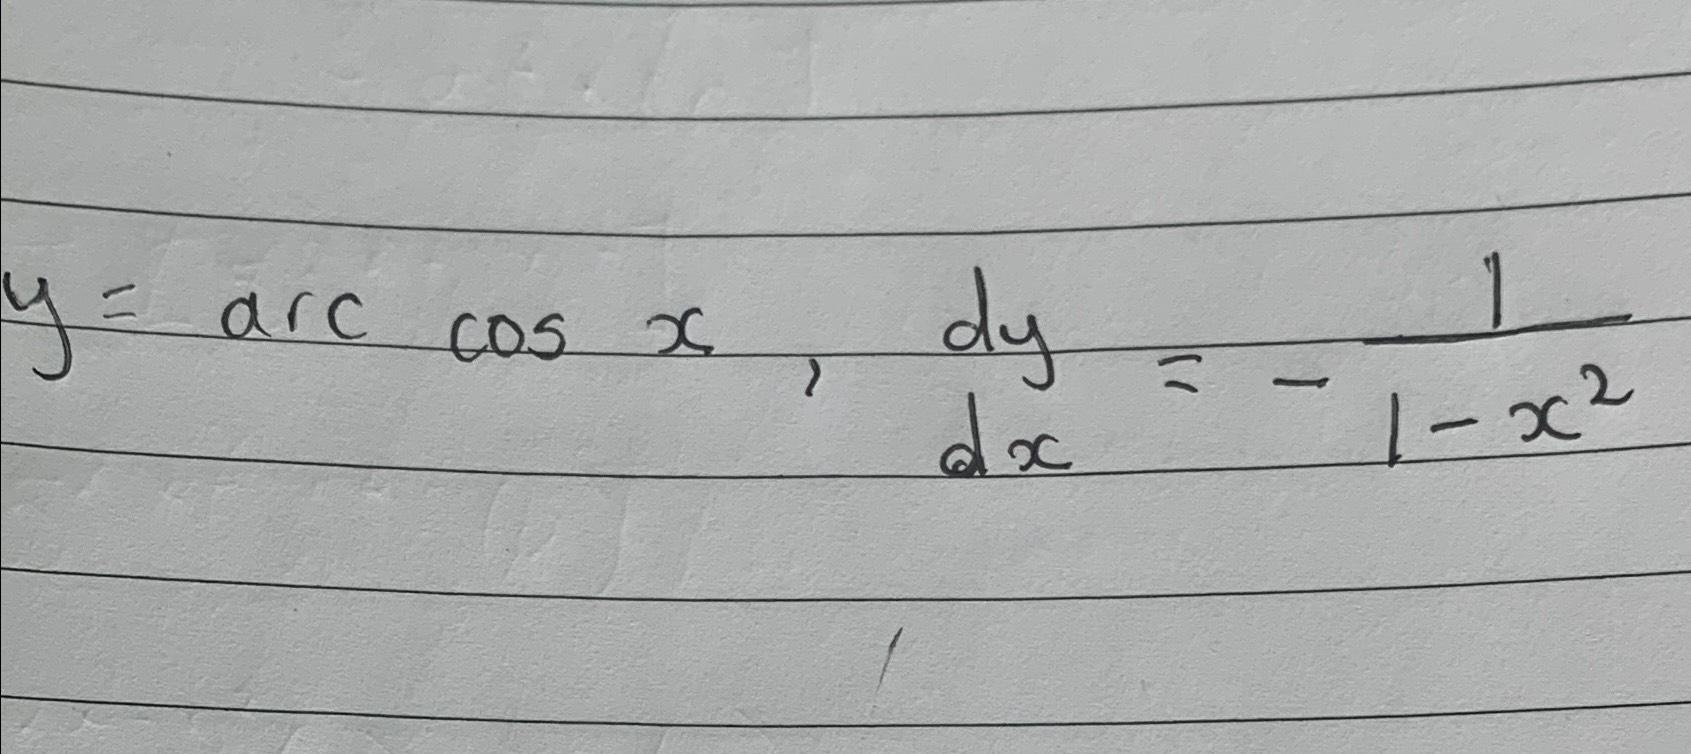 y = arc cos x, dy/dx = - 1/(1 - x²)